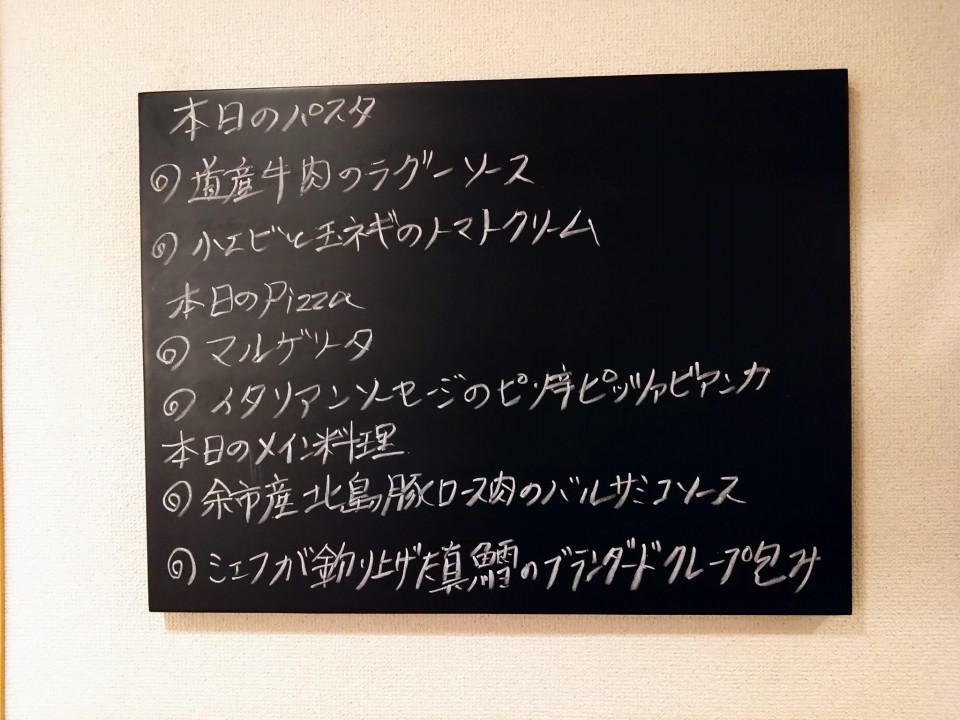 本日のパスタ
◎ 道産牛肉のラグーソース
◎ 小エビと玉ネギのトマトクリーム
本日のPizza
◎ マルゲリータ
◎ イタリアンソーセージのピリ辛ピッツァビアンカ
本日のメイン料理
◎ 余市産北島豚ロース肉のバルサミコソース
◎ シェフが釣り上げた真鱈のブランダードクレープ包み